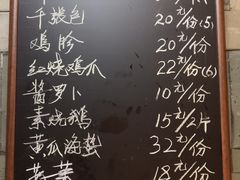 千張包 20元/份(5)
鸡胗 20元/份
红烧鸡爪 22元/份(6)
酱罗卜 10元/份
素烧鹅 15元/2片
黄瓜海蜇 32元/份
18元/份